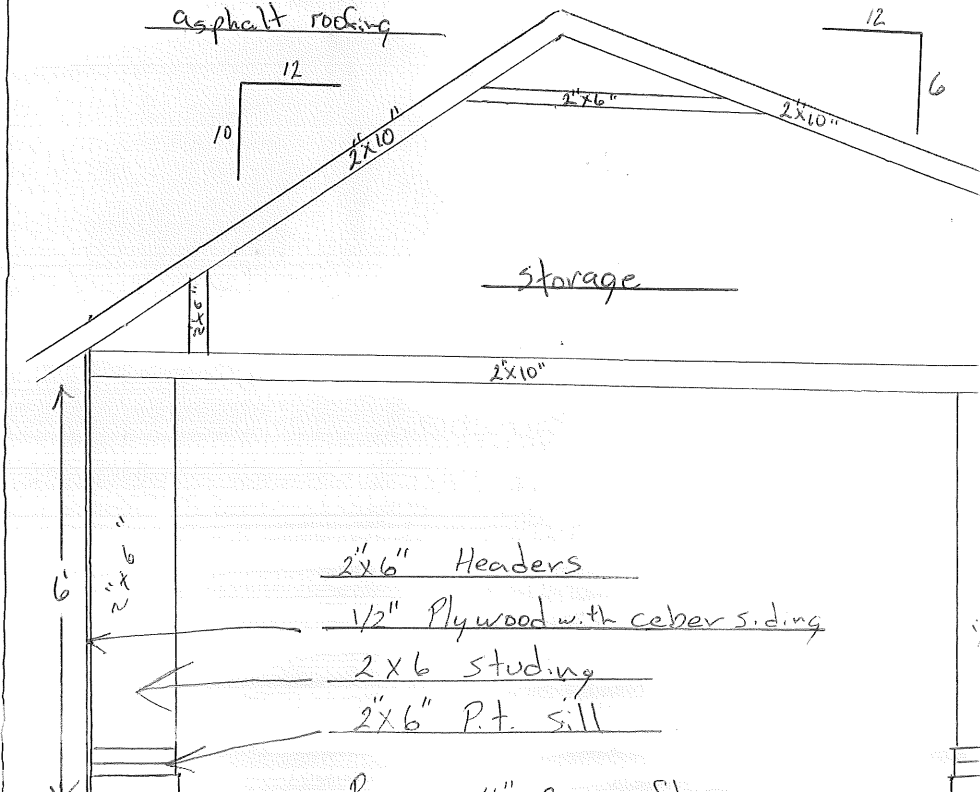 asphalt roofing
12
12
6
10
2"x6"
2"x10"
2"x10"
storage
2"x6"
2"x10"
2"x6"
6'
2"x6" Headers
1/2" Plywood with ceber siding
2x6 studing
2"x6" P.t. sill